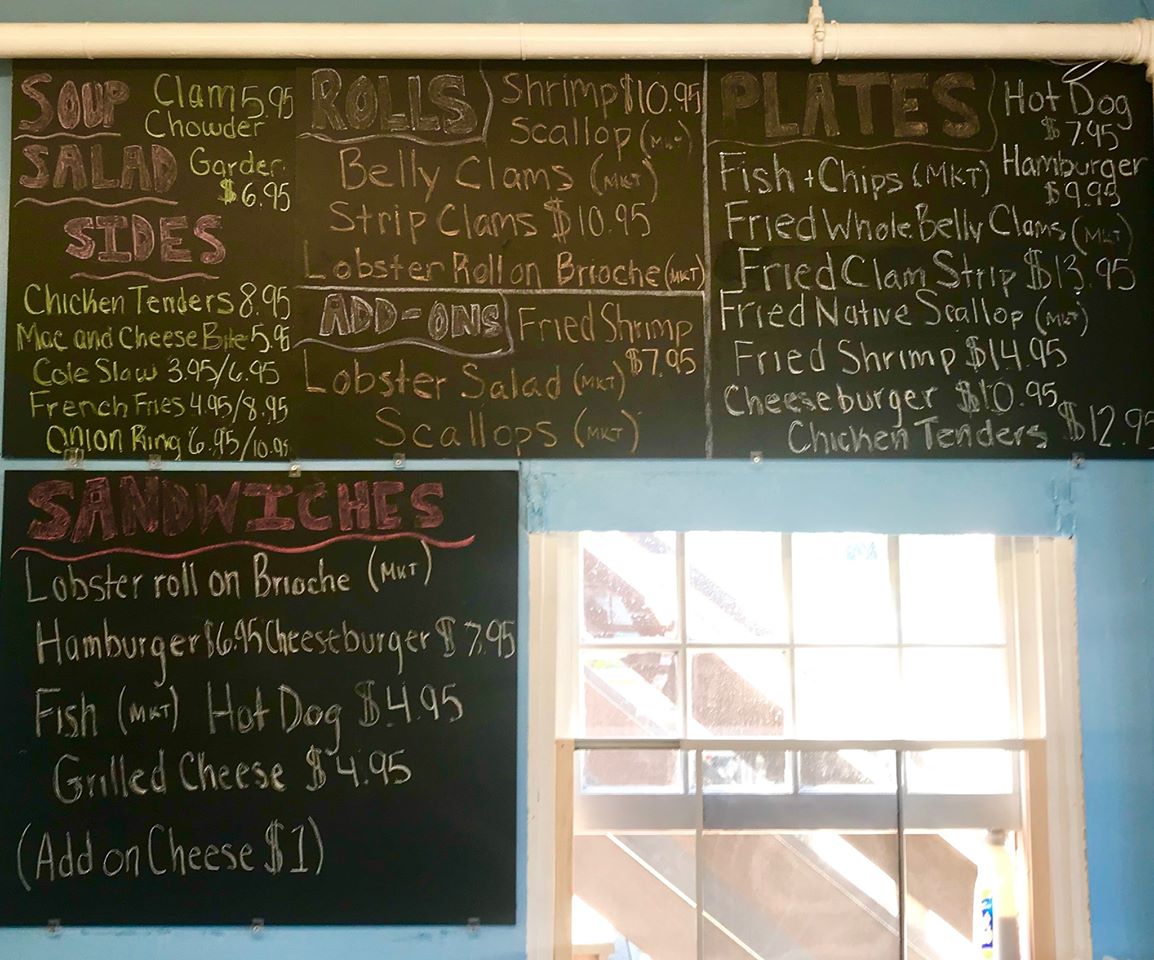 SOUP Clam 5.95
Chowder
SALAD Garden
$6.95
SIDES
Chicken Tenders 8.95
Mac and Cheese Bite 5.95
Cole Slaw 3.95/6.95
French Fries 4.95/8.95
Onion Ring 6.95/10.95
ROLLS Shrimp $10.95
Scallop (MKT)
Belly Clams (MKT)
Strip Clams $10.95
Lobster Roll on Brioche (MKT)
ADD-ONS Fried Shrimp
$7.95
Lobster Salad (MKT)
Scallops (MKT)
PLATES Hot Dog
$7.95
Fish + Chips (MKT) Hamburger
$9.95
Fried Whole Belly Clams (MKT)
Fried Clam Strip $13.95
Fried Native Scallop (MKT)
Fried Shrimp $14.95
Cheeseburger $10.95
Chicken Tenders $12.95
SANDWICHES
Lobster roll on Brioche (MKT)
Hamburger $6.95 Cheeseburger $7.95
Fish (MKT) Hot Dog $4.95
Grilled Cheese $4.95
(Add on Cheese $1)